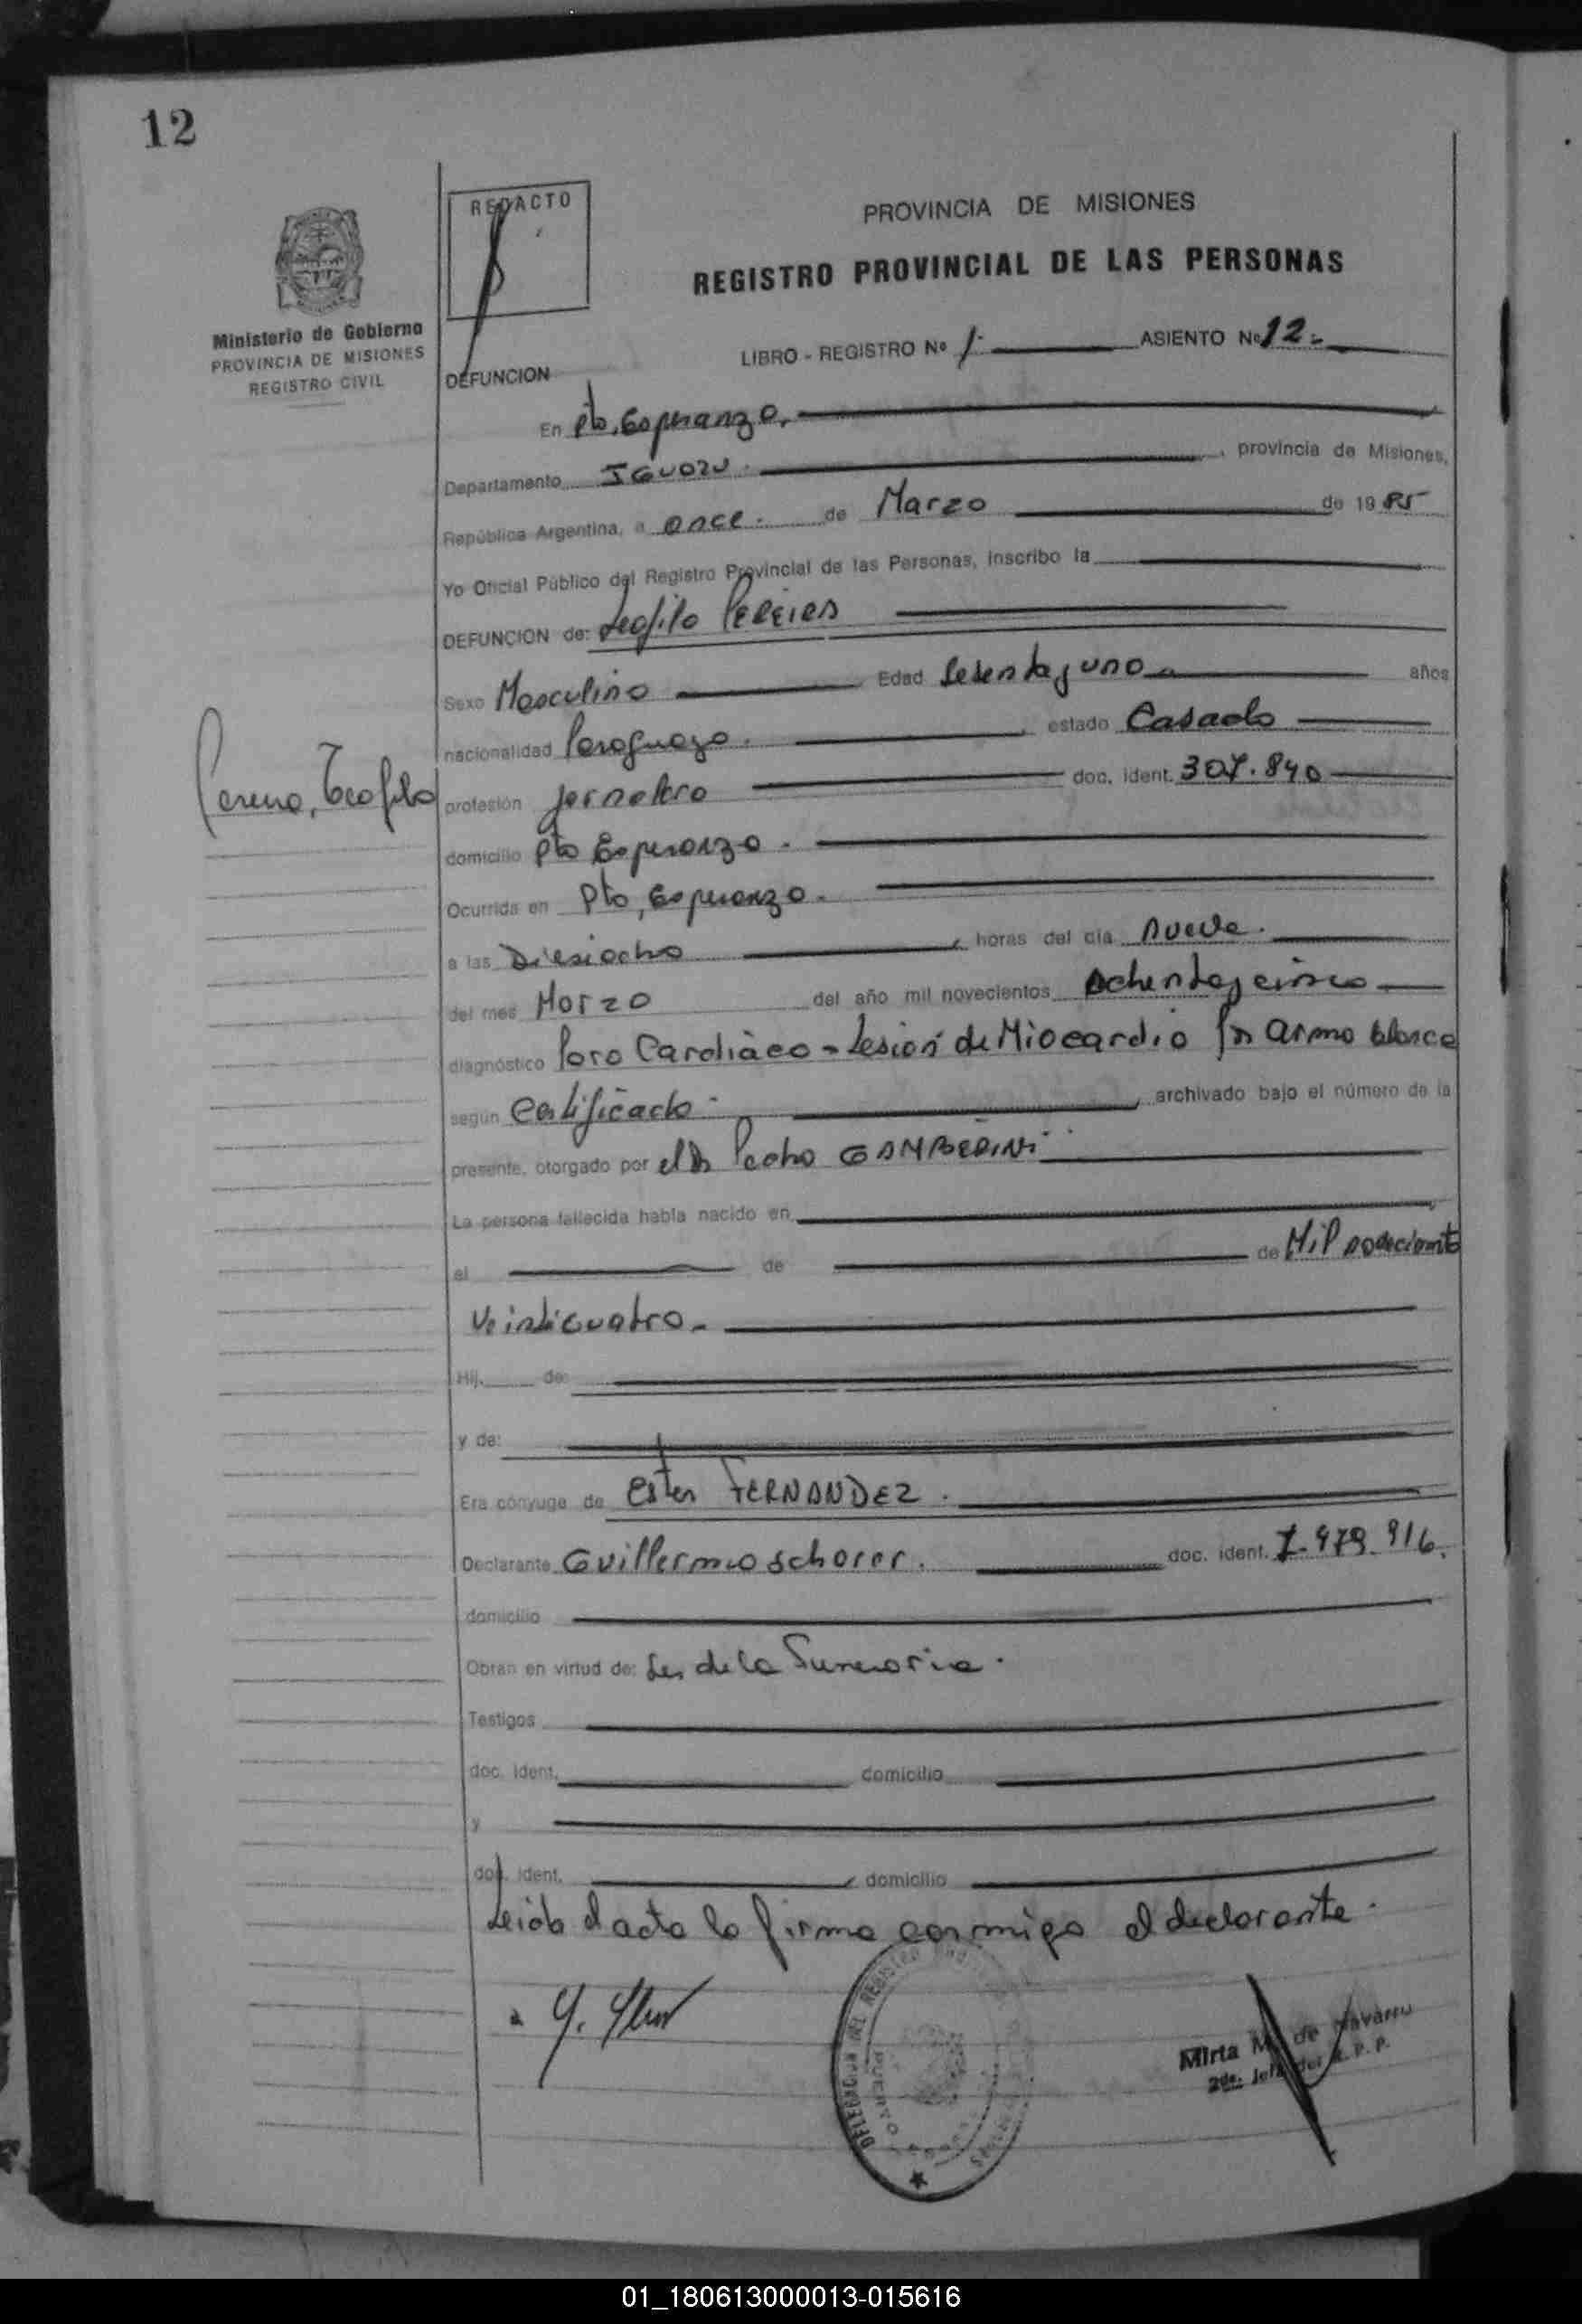 12
REDACTO
PROVINCIA DE MISIONES
REGISTRO PROVINCIAL DE LAS PERSONAS
Ministerio de Gobierno
PROVINCIA DE MISIONES
REGISTRO CIVIL
LIBRO - REGISTRO Nº 1.- ASIENTO Nº 12.-
DEFUNCION
En Pto. Esperanza.
Departamento IGUAZU. , provincia de Misiones,
República Argentina, a once. de Marzo de 1985
Yo Oficial Público del Registro Provincial de las Personas, inscribo la
DEFUNCION de: Teofilo PEREIRA
Sexo Masculino Edad Sesentayuno años
nacionalidad Paraguaya. , estado Casado
Pereira, Teofilo
profesión Jornalero doc. ident. 307.840
domicilio Pto Esperanza.
Ocurrida en Pto, Esperanza.
a las Diesiocho , horas del día nueve.
del mes Marzo del año mil novecientos Ochentaycinco
diagnóstico Paro Cardiàco - Lesión de Miocardio por arma blanca
según Certificado , archivado bajo el número de la
presente, otorgado por el Dr Pedro GAMBERINI
La persona fallecida había nacido en
el de de Mil novecientos
Veinticuatro.
Hij. de:
y de:
Era cónyuge de Ester FERNANDEZ.
Declarante Guillermo Schorer. doc. ident. 7.479.916.
domicilio
Obran en virtud de: Ley de la Sumaria.
Testigos
doc. ident. domicilio
y
doc. ident. , domicilio
Leida el acta la firma conmigo el declarante.
DELEGACION DEL REGISTRO
Mirta M. de Navarro
2da. Jefa del R. P. P.
01_180613000013-015616